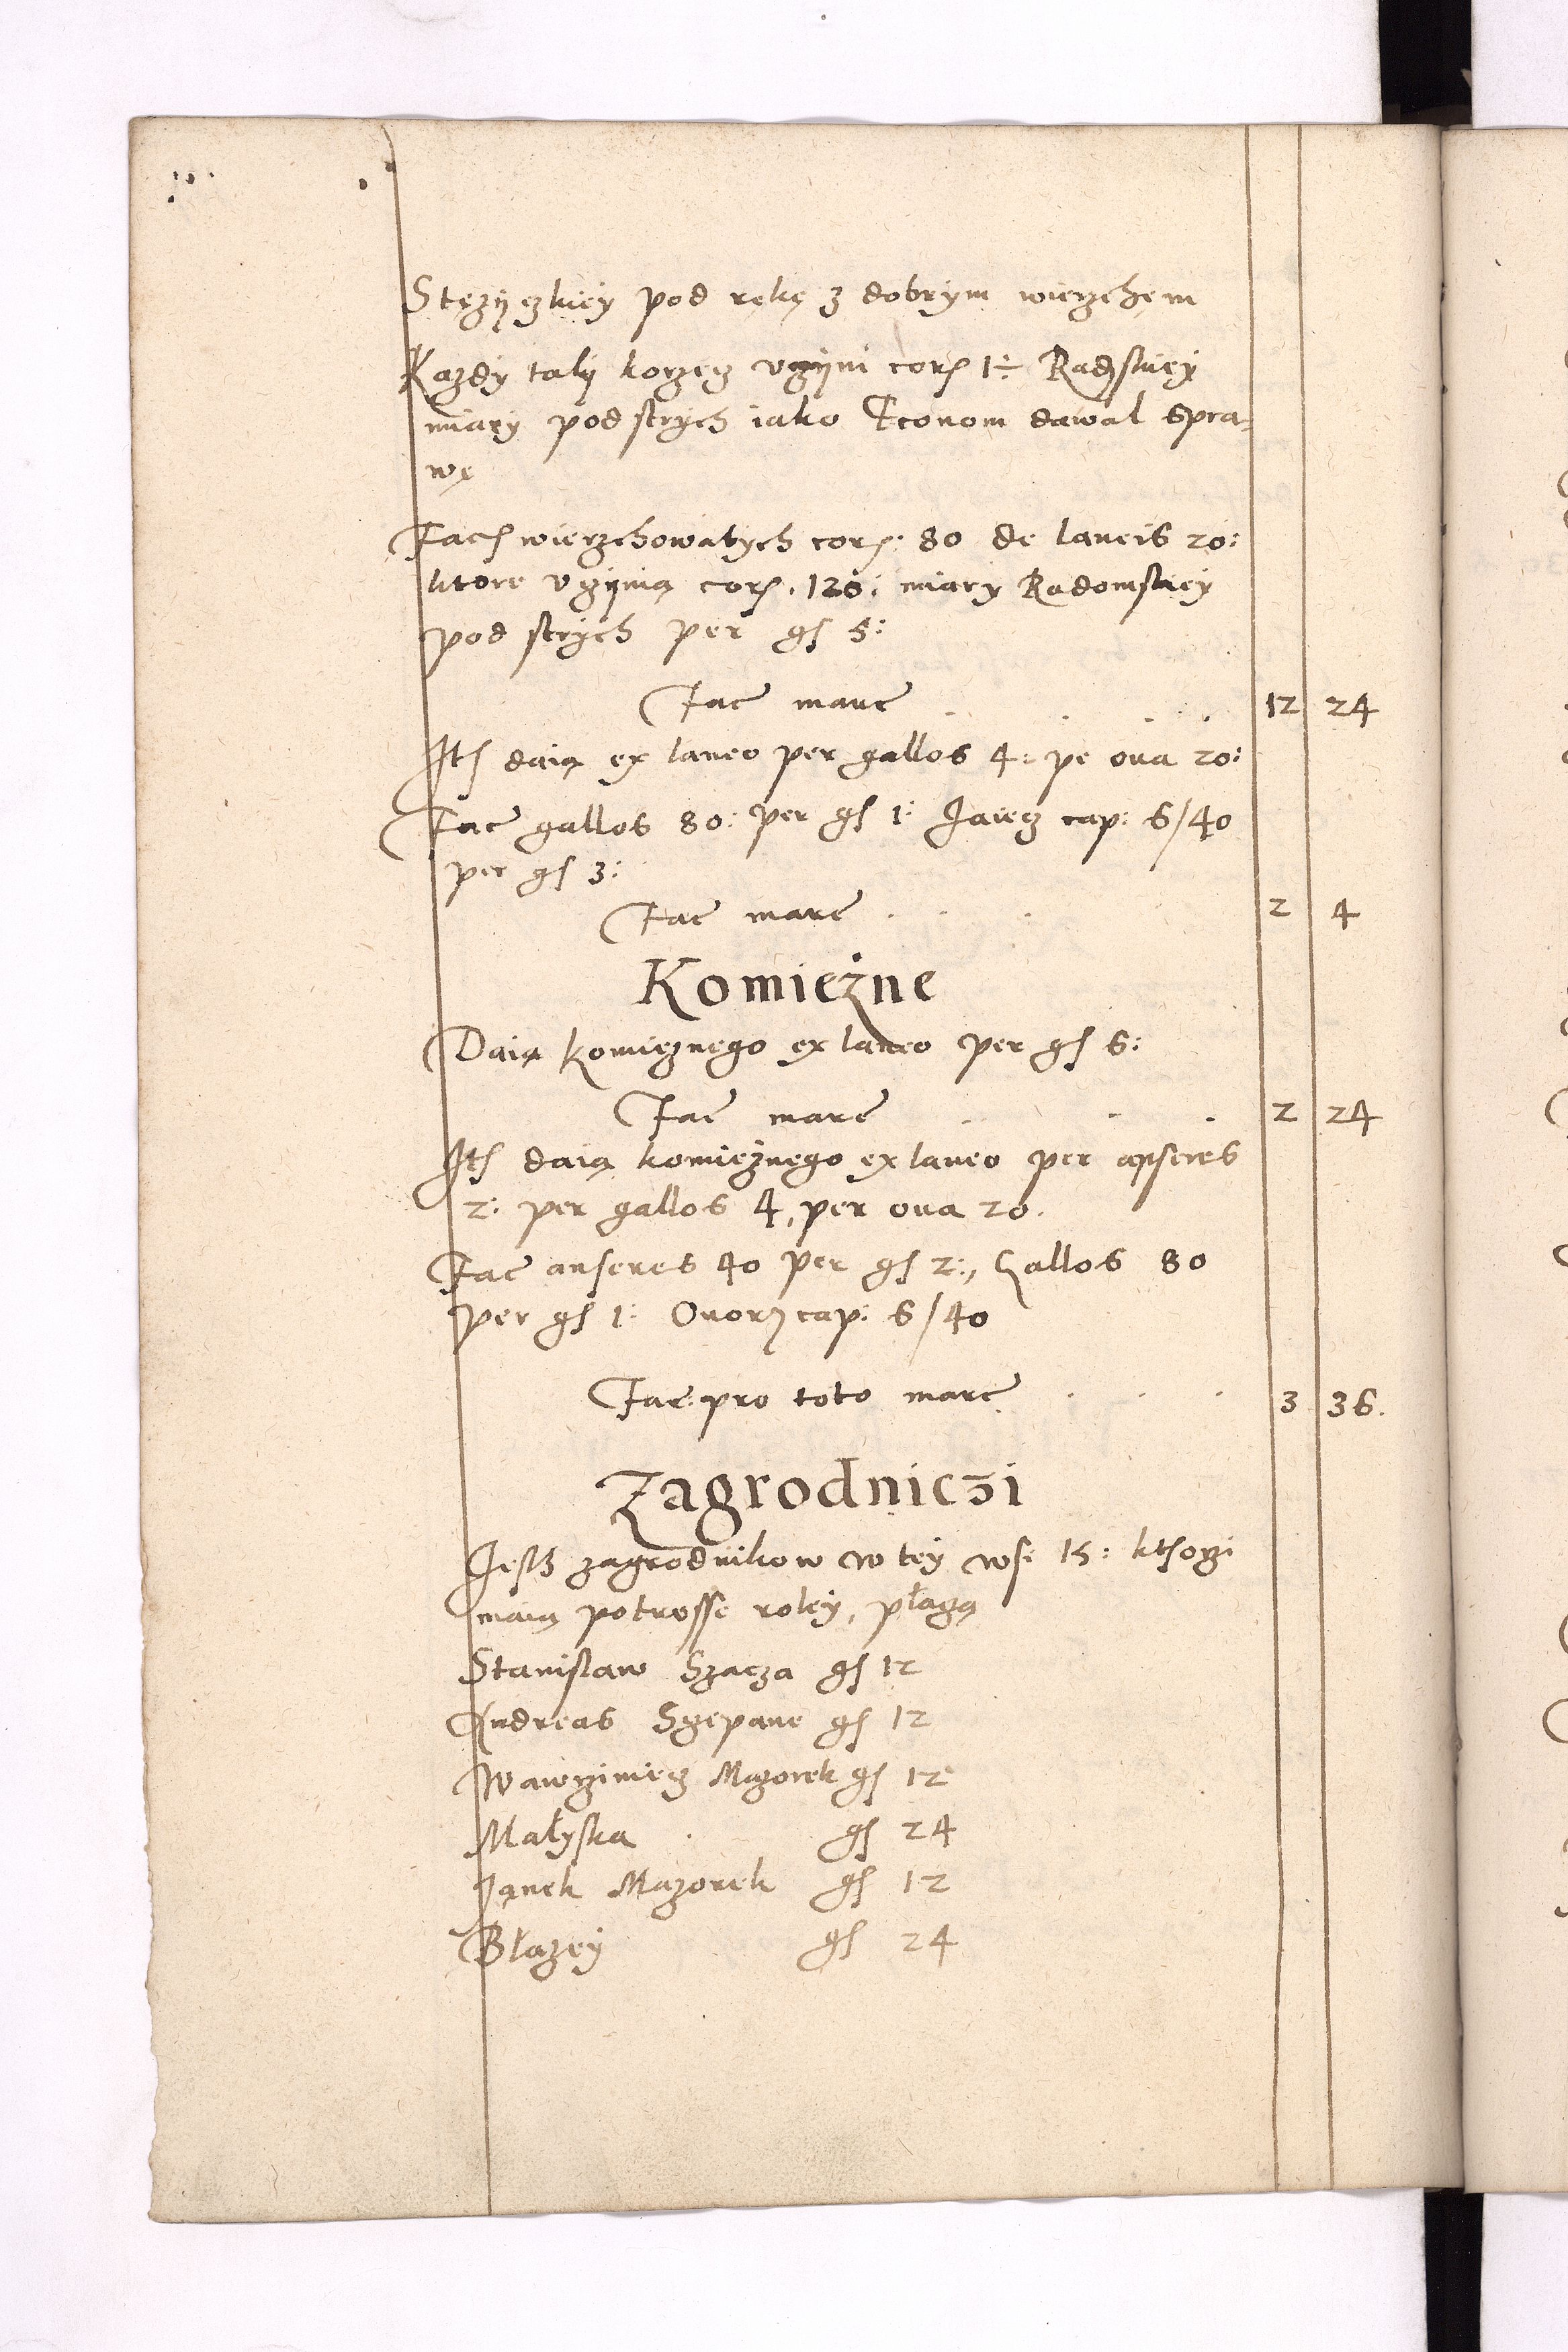 Stęzyczkiey pod rękę z dobrym wierzchem
Kazdy taky korzecz vczyni cor. 1÷ Radomskiey
miary pod strych iako Econom dawal spra-
wę
Fac. wierzchowatych cor. 80 de laneis 20:
ktore vczynią cor. 120: miary Radomskiey
pod strych per gs 5:
Fac marc . . . . 12 24
Itē daią ex laneo per gallos 4: pe oua 20:
Fac gallos 80: per gs 1: Jaiecz cap: 6/40
per gs 3:
Fac marc . . . 2 4
Komieżne
Daią komieznego ex laneo per gs 6:
Fac marc . . . 2 24
Itē daią komieżnego ex laneo per anseres
2: per gallos 4, per oua 20.
Fac anseres 40 per gs 2:, Gallos 80
per gs 1: Ouorum cap: 6/40
Fac pro toto marc . . . 3 36.
Zagrodniczi
Jest zagrodnikow w tey wsi 15: ktorzi
maią potrosse roley, płaczą
Stanislaw Szacza gs 12
Andreas Sczepane gs 12
Wawrziniecz Mazorek gs 12
Małyska . gs 24
Janek Mazorek gs 12
Błazey gs 24